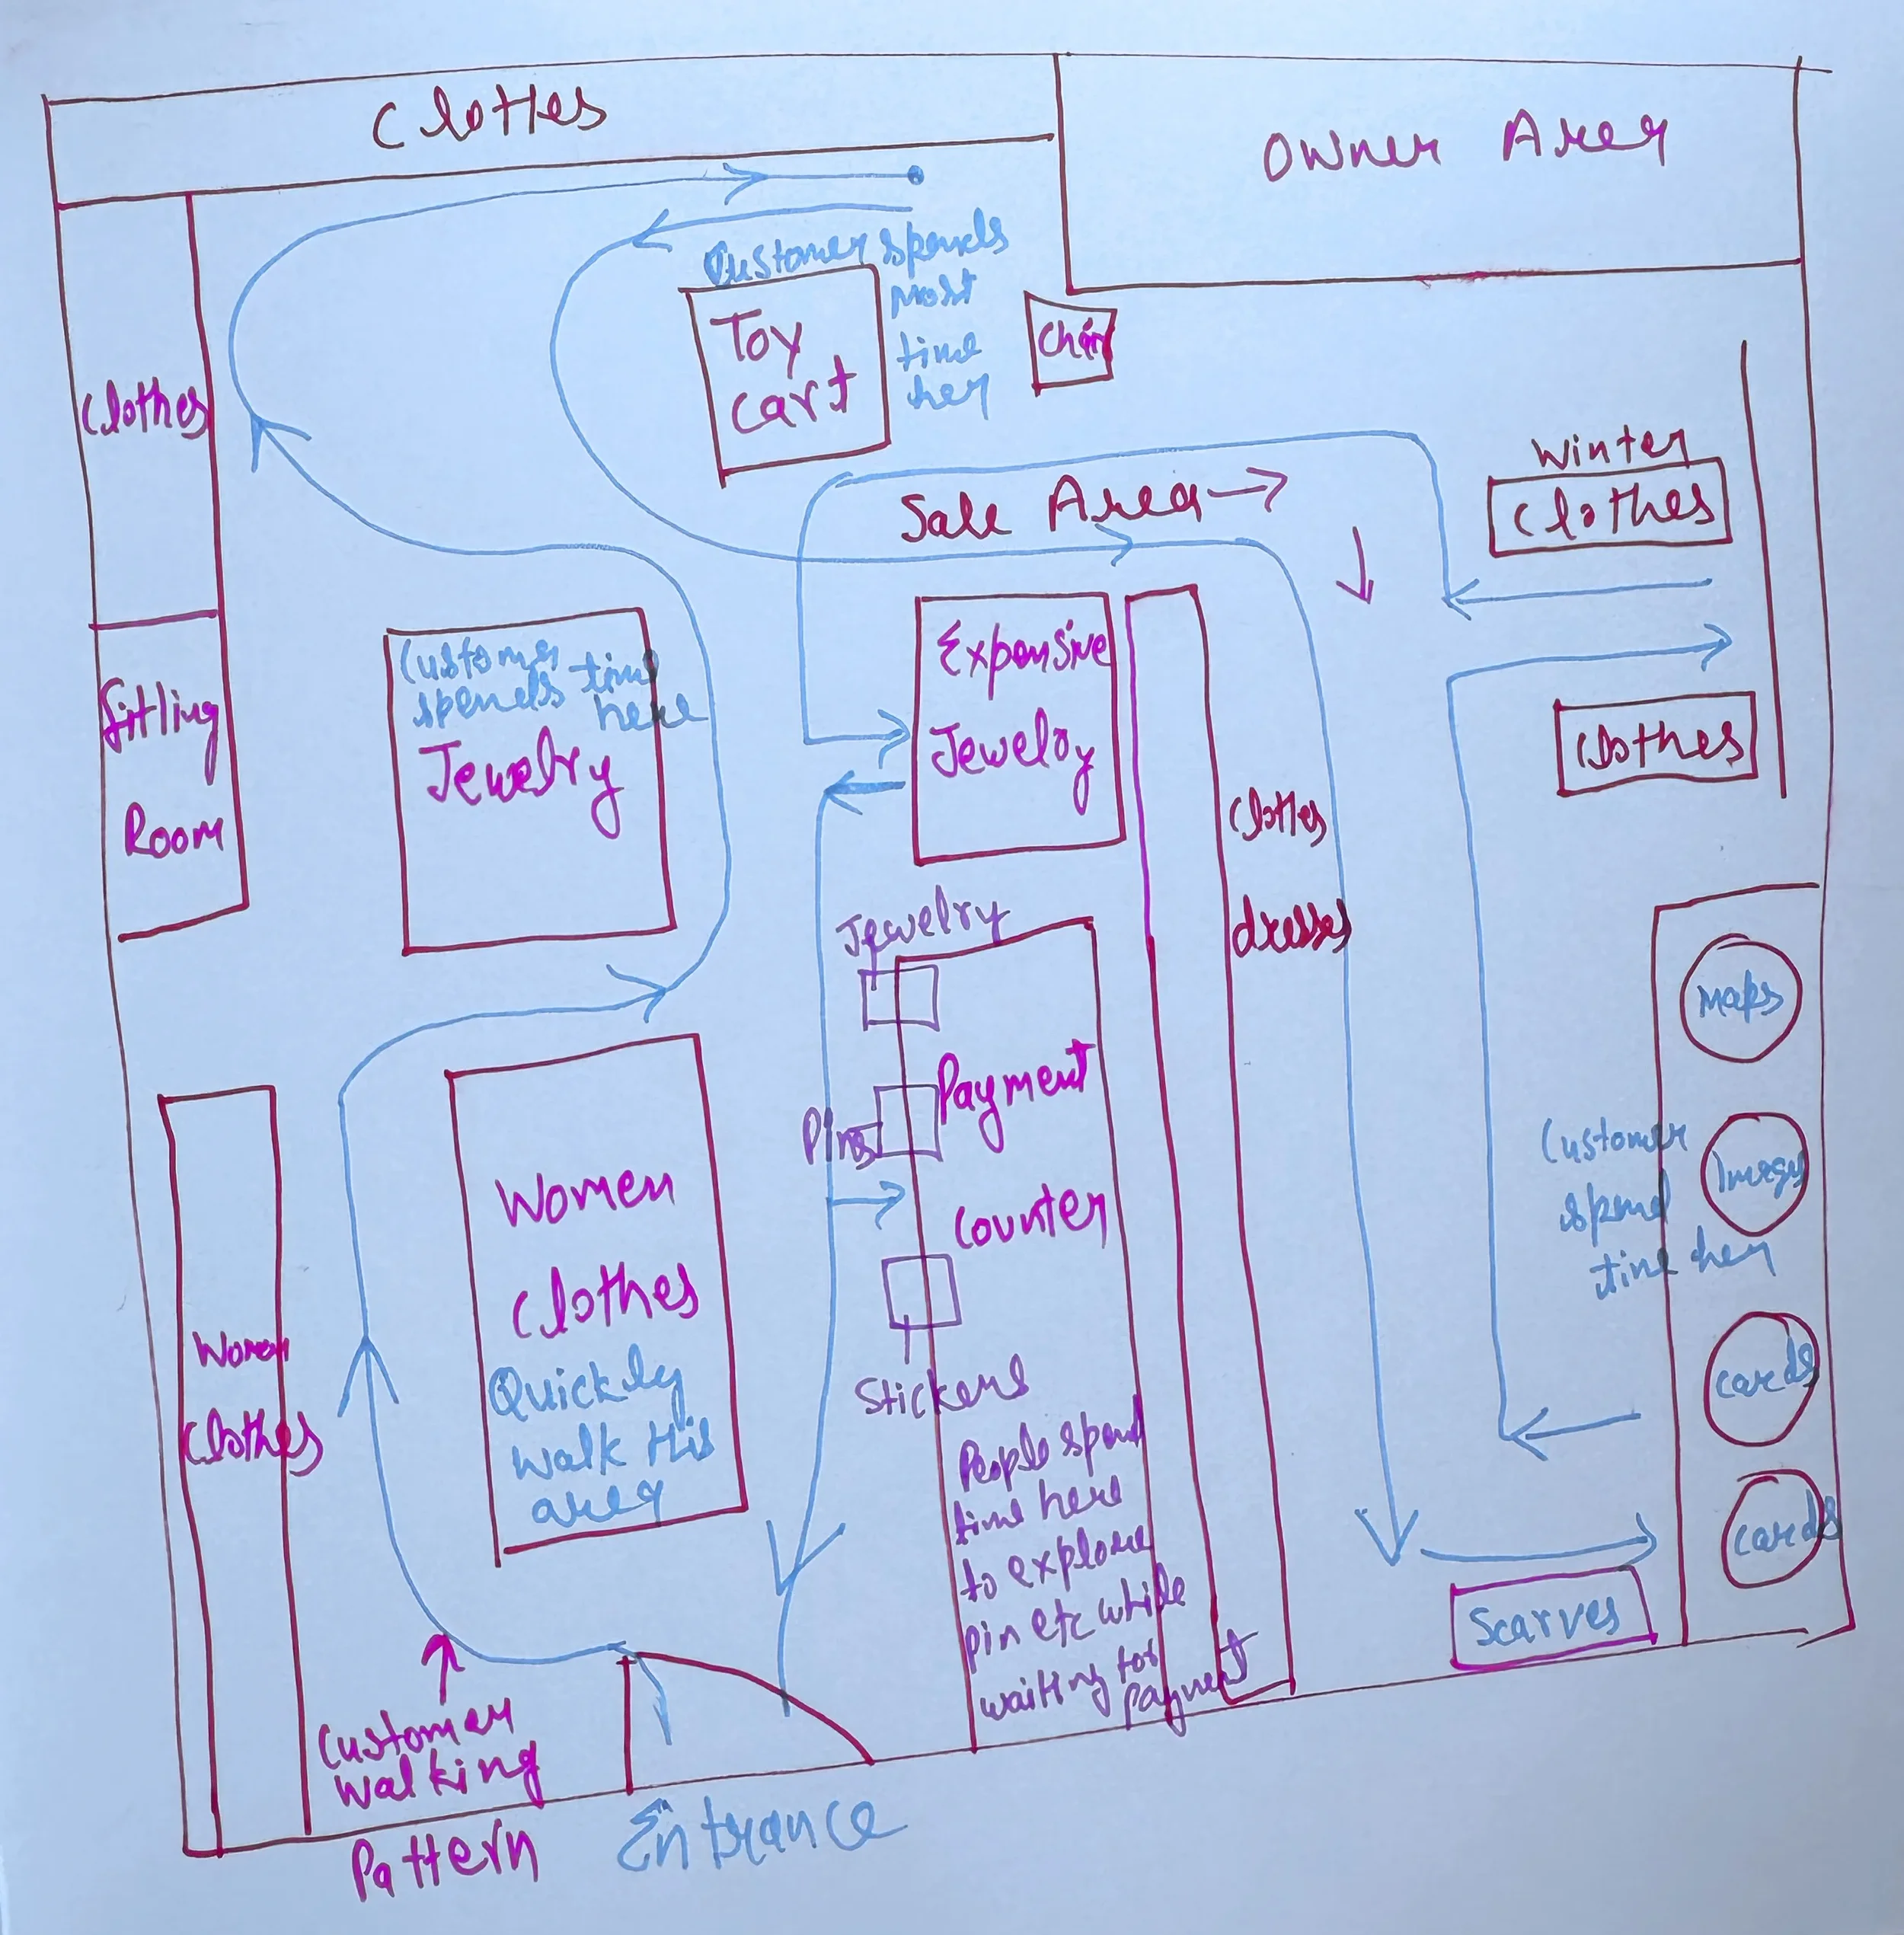 Clothes
Owner Area
Customer spends
most
time
her
Toy
cart
Chair
Clothes
Winter
Clothes
Sale Area
Expensive
Jewelry
Customer
spends time
here
Jewelry
Fitting
Room
Clothes
Clothes
dresses
Jewelry
Maps
Payment
Pins
Counter
Customer
spend
time her
Images
Women
Clothes
Quickly
walk this
area
Women
Clothes
Stickers
cards
People spend
time here
to explore
pin etc while
waiting for
payment
cards
Scarves
Customer
walking
Pattern
Entrance